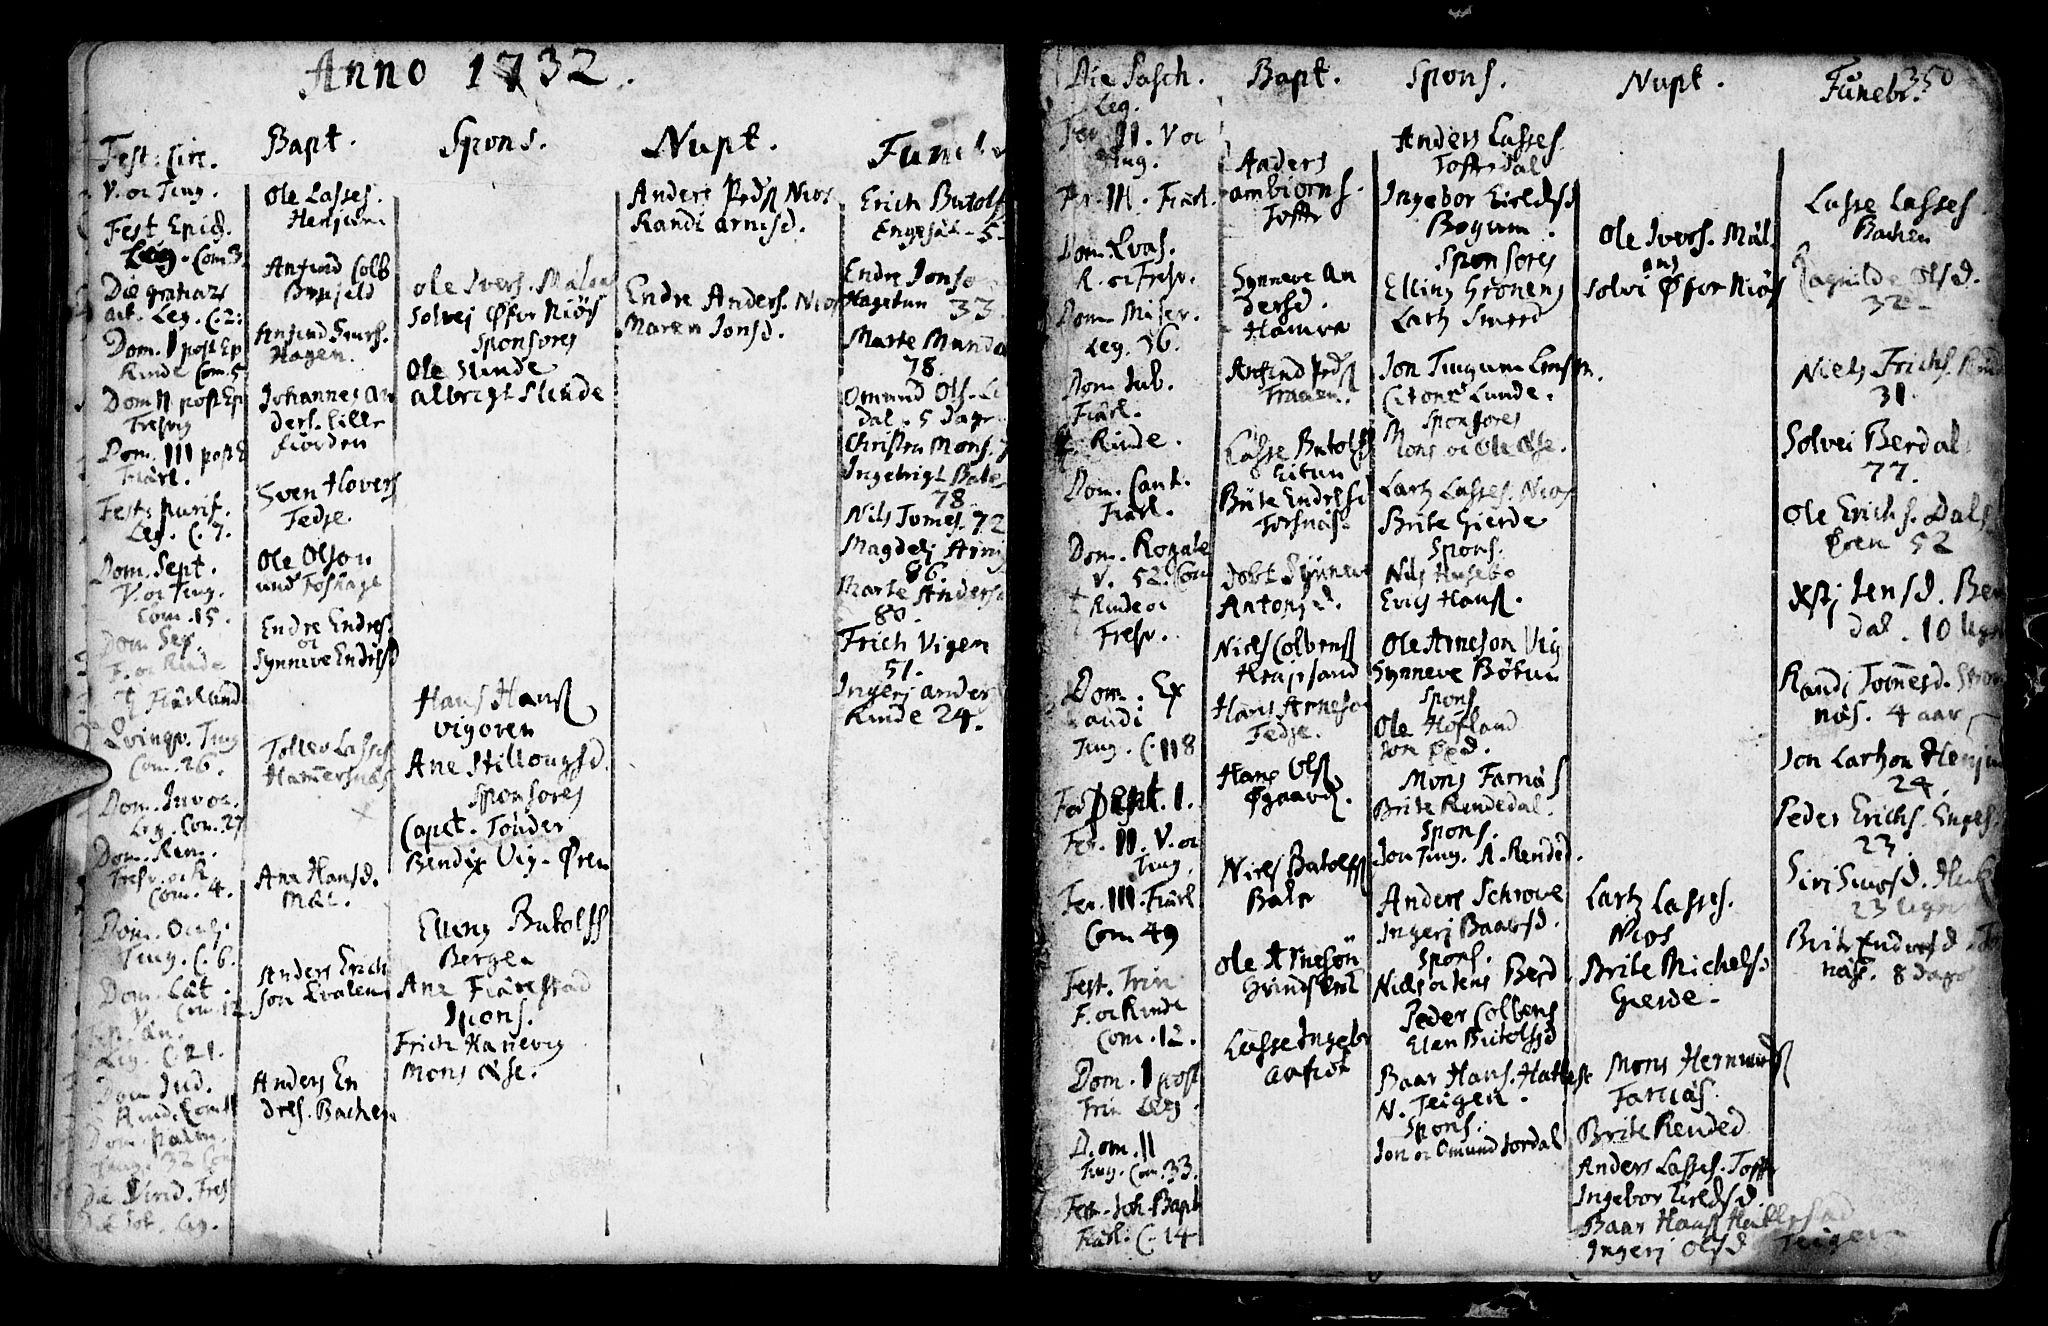 Anno 1732.
Fest: Circ.
V. oc Ting.
Fest Epiph.
Leg. Com 3.
Die gratiar
act. Leg. C. 2:
Dom. I post Ep
Rinde Com. 5
Dom II post Ep
Tresvig
Dom. III post E
Fiärl.
Fest: purif.
Leg. C. 7.
Dom. Sept.
V. oc Ting.
Com. 15.
Dom Sex.
F. oc Rinde
Fiärland
Qvinqv. Ting
Com. 26.
Dom. Invoc.
Leg. Com. 27
Dom. Rem.
Tresv. oc R
Com. 4.
Dom. Ocul.
Ting. C. 6.
Dom. Læt.
V. Com. 12
An.
Leg. C. 21.
Dom Jud.
Rind. Com
Dom. palm.
Ting. 32 Co
Die Virid. Tres
Leg.
Bapt.
Ole Lasses.
Henjum
Anfind Colb
Anfind Siurs.
Hagen.
Johannes An
ders. Lille
fiorden
Sven Hovers
Fedje
Ole Olson
Endre Endres.
oc
Synneve Endrisd
Tollev Lasses
Hamersnäs
Ane Hansd.
Mæl.
Anders Erich
son Qvalem
Anders En
dres. Bachen
Spons.
Ole Ivers. Malau
Solvej Øfer Niøs
Sponsores
Ole Slinde
Albrigt Slinde
Hans Hanss
Vigoren
Ane Stillougsd.
Sponsores
Capet. Tonder
Bendix Vig-Øren
Elleng Butolss
Bergen
Ane Fiærestad
Spons.
Erich Hanevig
Mons Alse.
Nupt.
Anders Peds Nios
Randi Arnesd.
Endre Anders. Nios
Maren Jonsd.
Funebr
Erich Butolf
Engesæt - 5-
Endre Jonso
Hagetun 33.
Marte Munda
78.
Omund Ols. Li
dal. 5 Dage
Christen Mons. 7
Ingebrigt Bale
78.
Nils Tomes. 72
Magdelj Arnis
86.
Marte Andersd
80.
Erich Vigen
51.
Ingerj Anders
Rinde 24.
350
Die Pasch.
Leg.
Fer. II. V oc
Ting.
Fer. III. Fiärl.
Dom. Qvas.
R. oc Tresv.
Dom Miser.
Leg. 36.
Dom Jub.
Fiärl.
Rinde.
Dom. Cant.
Fiärl.
Dom. Rogate
V. 52. Com
Rinde oc
Tresv.
Dom. Ex
audi
Ting. C. 118
Fer. Pent. I.
Fer. II. V. oc
Ting
Fer. III. Fiärl
Com 49
Fest. Trin
F. oc Rinde
Com. 12.
Dom. I post
Trin Leg.
Dom. II
Ting. Com. 33.
Fest. Joh. Bapt
Fiärl. C. 14
Bapt.
Anders
Ambiorns.
Toffte
Synneve An
dersd.
Hamre
Anfind Peds
Lasse Butolss
Eitun
Brite Endresd
Torsnäs.
Dobt Synneve
Antonsd.
Niels Colbenss
Hans Arneson
Fedje.
Hans Olss
Øgaard.
Niels Butolfss
Bale
Ole Arneson
Grindskreen
Lasse Ingebr
Aafedt
Spons.
Anders Lasses.
Toffte Dal
Ingebor Eieldsd
Bogum.
Sponsores
Elling Gronens
Lartz Smed
Jon Tingum
Citone Lunde.
Sponsores
Mons oc Ole Alse.
Lartz Lasses. Nios
Brite Gierde
Spons.
Nils Husebo
Erich Hanss.
Ole Arneson Vig
Synneve Bötun
Spons
Ole Hofland
Mons Farnäs
Brite Rendedal
Spons.
Jon Ting. A. Rended.
Anders Schrove
Ingerj Baarsd.
Spons.
Niels oc Jens Berd
Peder Colbens
Elen Butolssd
Baar Hans. Hatlest
N. Teigen.
Spons.
Jon oc Omund Jordal
Nupt.
Ole Ivers. Mæl
Solvi Øfer Niøs
Lartz Lasses.
Nios
Brite Michelsd
Gierde.
Mons Hermunds
Farnäs.
Brite Rended
Anders Lasses. Toffte
Ingebor Eieldsd.
Baar Hanss Hatlestad
Ingerj Olsd Teigen
Funebr.
Lasse Lasses
Bachen
Ragnilde Olsd.
32-
Niels Erichs. Rind
31.
Solvei Berdal
77.
Ole Erichs. Dals
Øren 52
Jensd. Ber
dal. 10 Uger
Randi Tomesd.
näs. 4 aar
Jon Larsson Henjum
24.
Peder Erichs. Enges.
23.
Siri Siursd.
23 Uger
Brite Endresd
näs. 8 dage